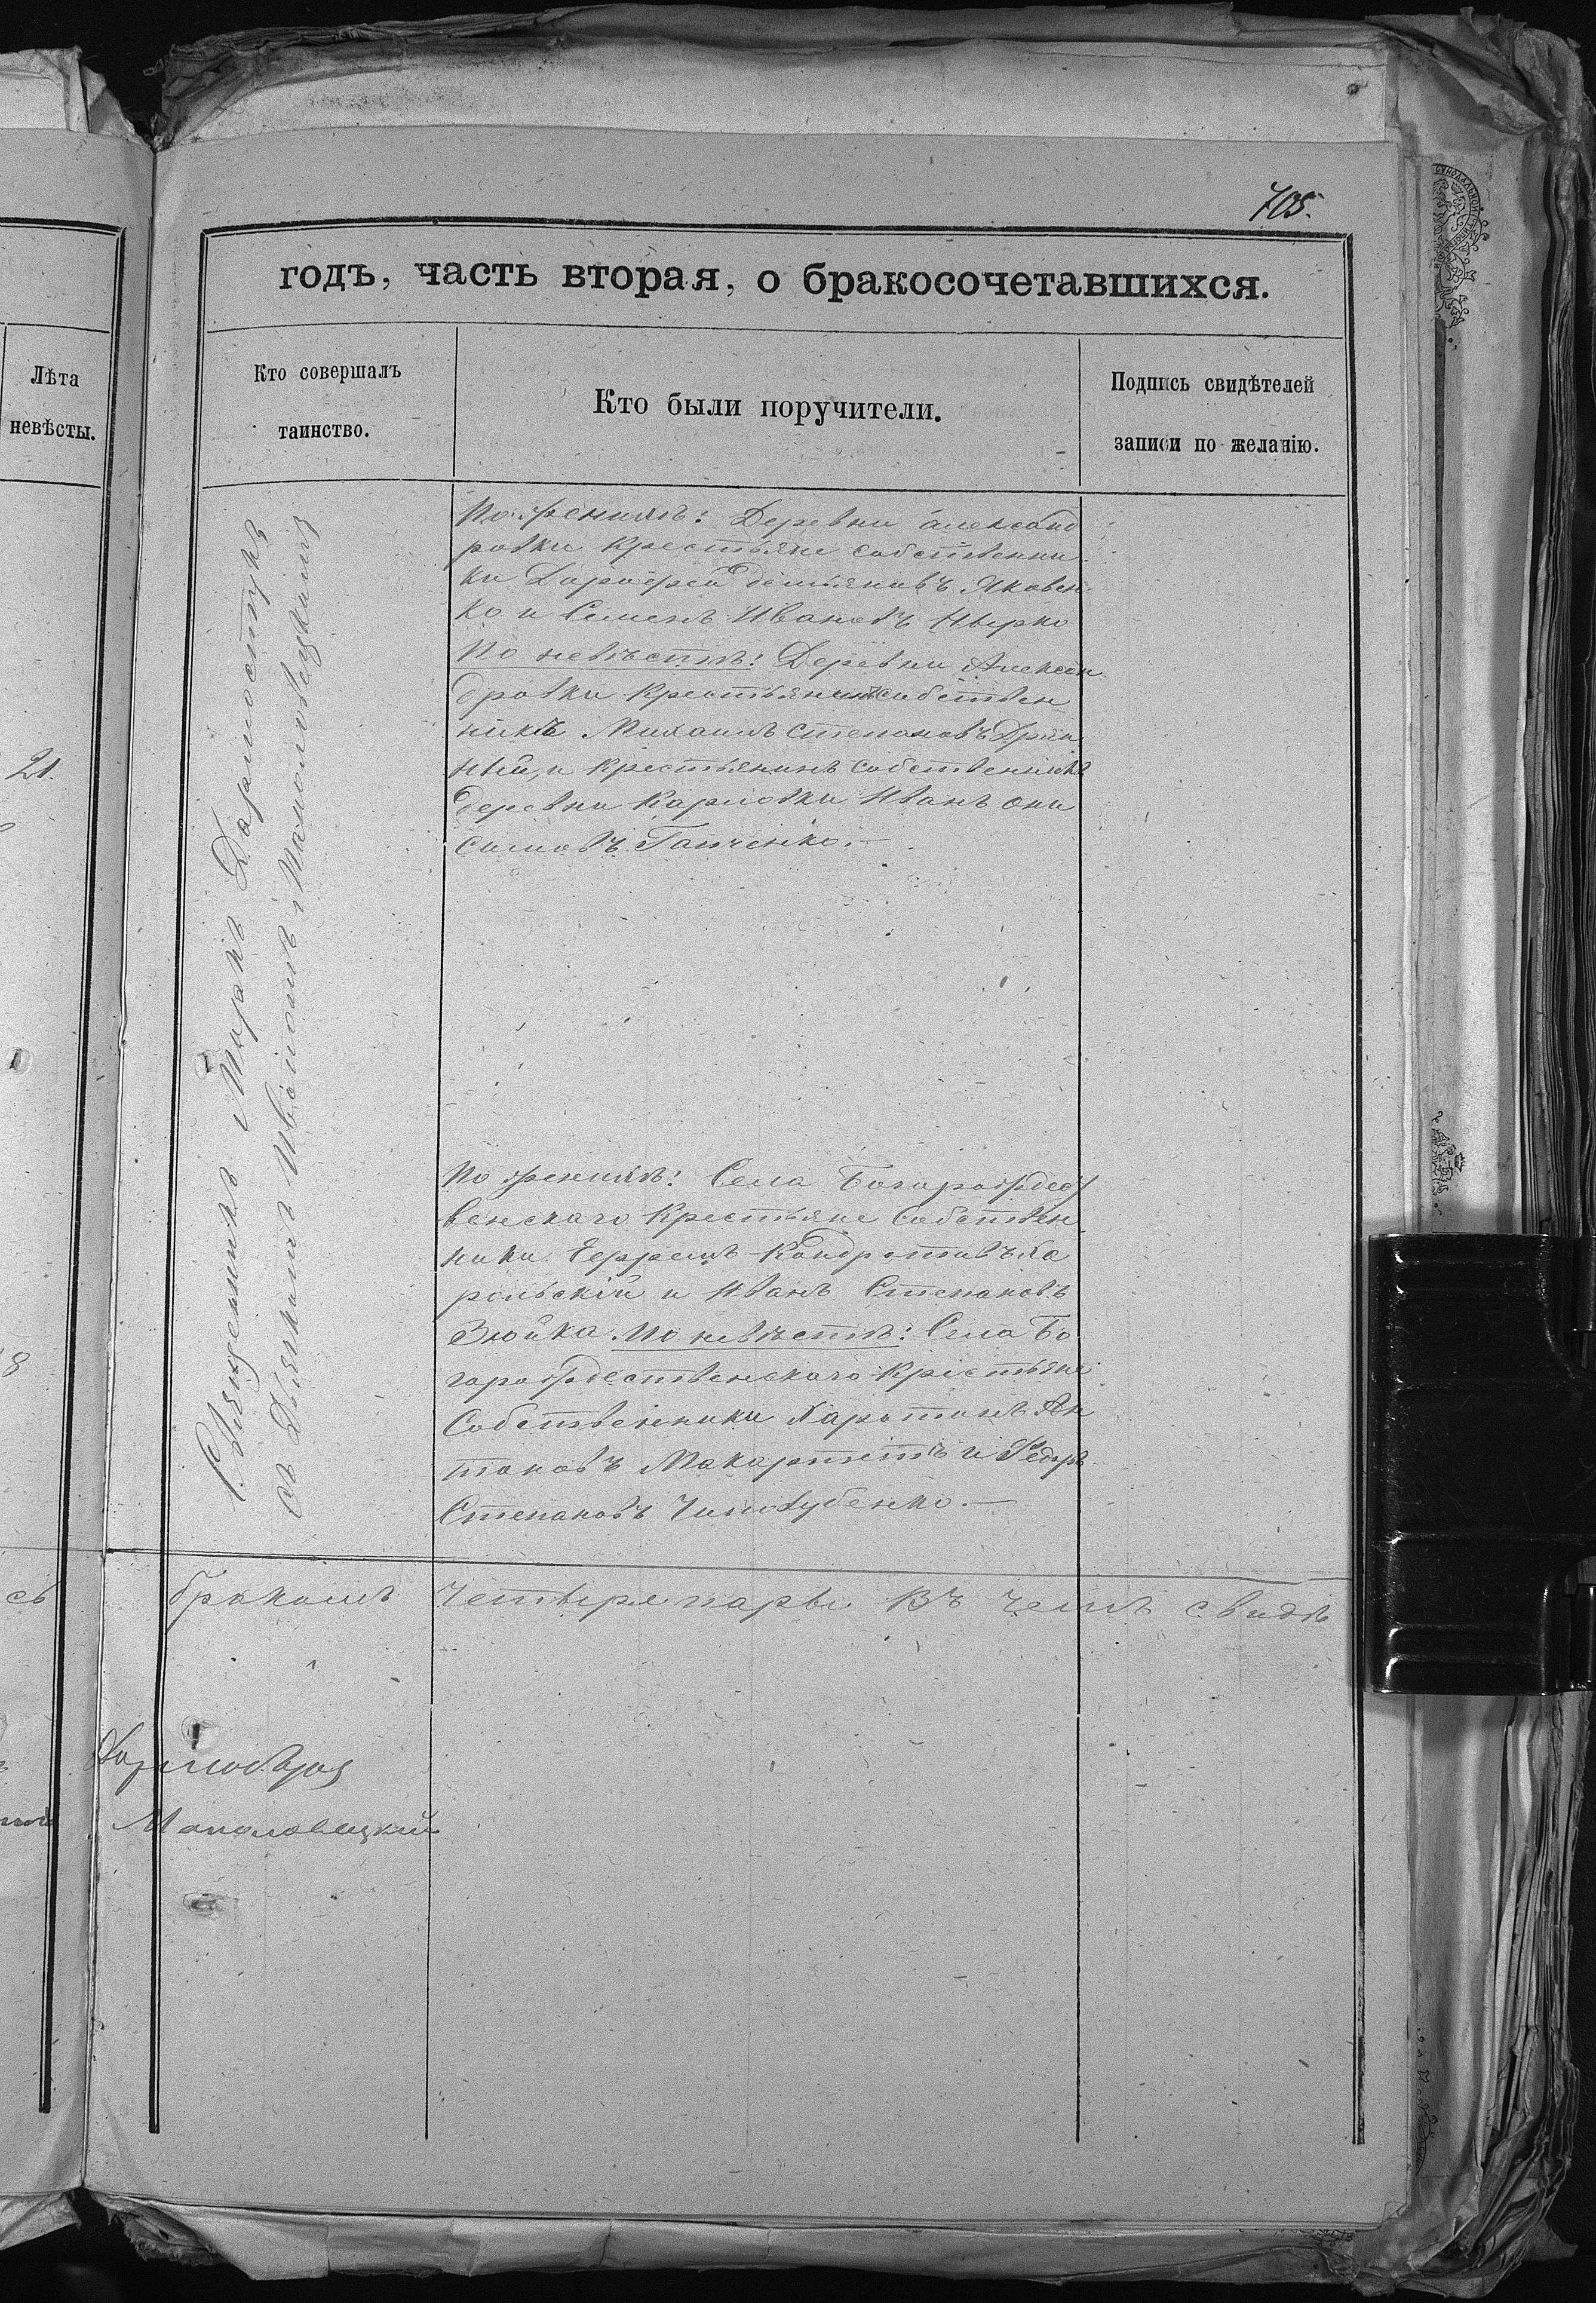 705.
годъ, часть вторая, о бракосочетавшихся.
Лѣта
невѣсты.
Кто совершалъ
таинство.
Кто были поручители.
Подпись свидѣтелей
записи по желанію.
21.
Священникъ Маркъ
съ Діякономъ Маполовецкимъ
По женихѣ: Деревни Александ
ровки Крестьяне собственни
ки Дорофей Демьяновъ Яковен
ко и Семенъ Ивановъ
По невѣстѣ: Деревни Алексан
дровки Крестьянинъ собствен
никъ Михаилъ Степановъ
и Крестьянинъ собственникъ
деревни Карловки Иванъ Они
симовъ Ганченко.—
По женихѣ: Села Богорождест
венскаго Крестьяне Собствен
ники Ефремъ Кондратовъ
рольскій и Иванъ Степановъ
Зюйка. По невѣстѣ: Села Бо
горождественскаго Крестьяне
Собственники Харитонъ Ан
тоновъ и Федоръ
Степановъ
съ бракомъ Четыре пары Въ чемъ свидѣ
Маполовецкий